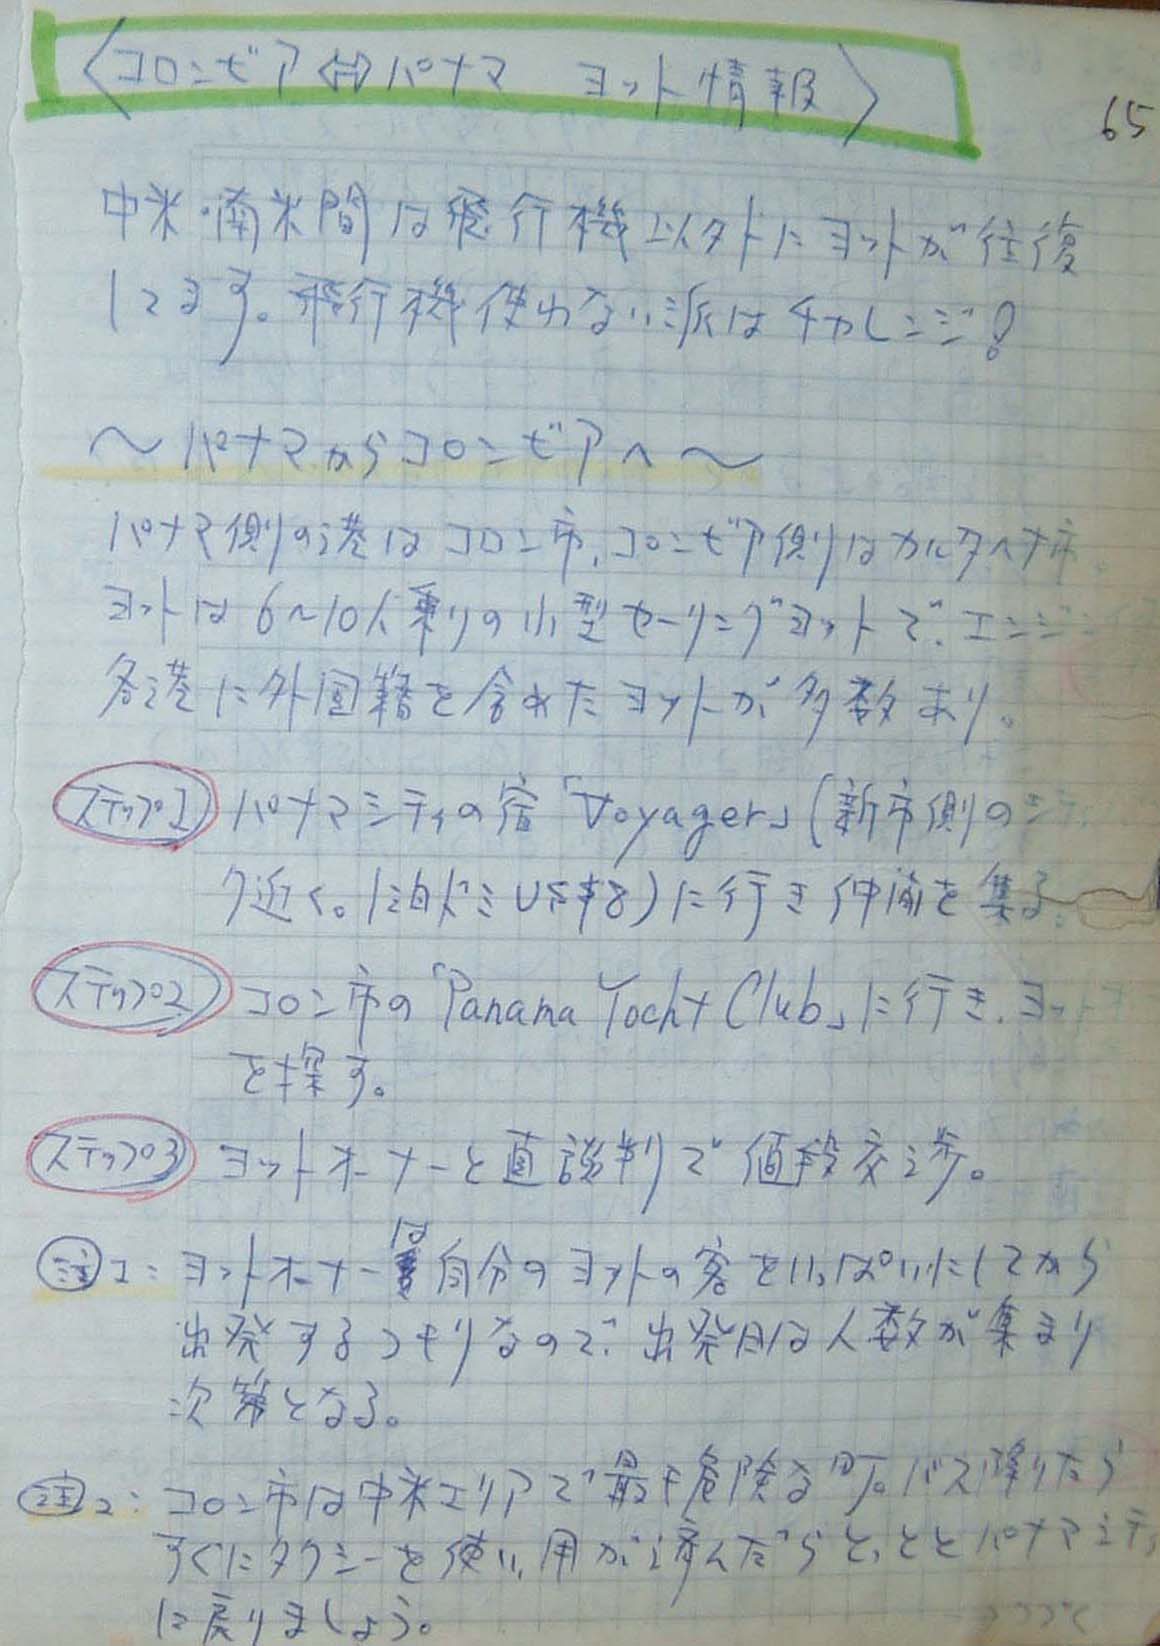 〈コロンビア⇔パナマ ヨット情報〉
65
中米・南米間は飛行機以外にヨットが往復
してます。飛行機使わない派はチャレンジ!
〜パナマからコロンビアへ〜
パナマ側の港はコロン市、コロンビア側はカルタヘナ市。
ヨットは6〜10人乗りの小型セーリングヨットで、エンジン
各港に外国籍を含めたヨットが多数あり。
ステップ1 パナマシティの宿「Voyager」(新市側の
ク近く。1泊ドミUS$8)に行き仲間を集る。
ステップ2 コロン市の「Panama Yocht Club」に行き、ヨット
を探す。
ステップ3 ヨットオーナーと直談判で値段交渉。
注1:ヨットオーナーは自分のヨットの客をいっぱいにしてから
出発するつもりなので、出発日は人数が集まり
次第となる。
注2:コロン市は中米エリアで最も危険な町。バス降りたら
すぐにタクシーを使い、用が済んだらとっととパナマシティ
に戻りましょう。